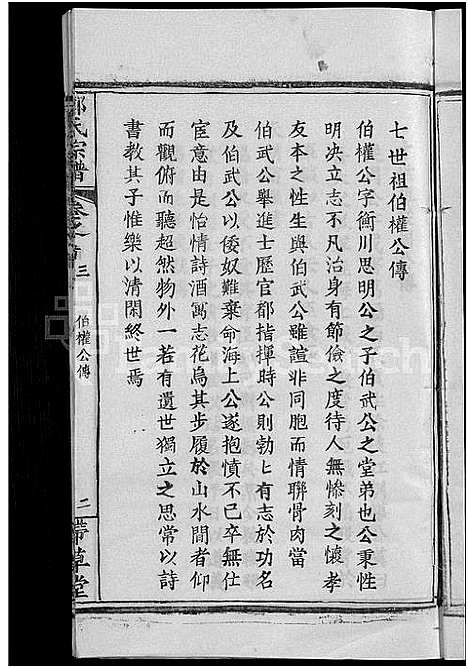 七世祖伯權公傳
伯權公字衡川思明公之子伯武公之堂弟也公秉性
明决立志不凡治身有節儉之度待人無慘刻之懷孝
友本之性生與伯武公雖誼非同胞而情聯骨肉當
伯武公舉進士歷官都指揮時公則勃匕有志於功名
及伯武公以倭奴難棄命海上公遂抱憤不已卒無仕
宦意由是怡情詩酒寓志花鳥其步履於山水間者仰
而觀俯而聽超然物外一若有遺世獨立之思常以詩
書教其子惟樂以清閑終世焉
氏宗譜
卷之首三
伯權公傳
二
帶草堂